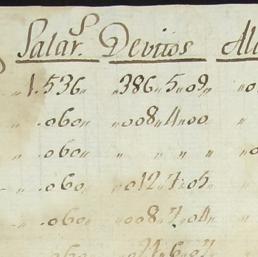 Salar.s Devitos Al
„ 1.536„ „386„5„09„
„ .060„ „008„4„00
„ .060„ „ „ „ „
„ .060„ „012„7„05
„ .060„ „008„7„04